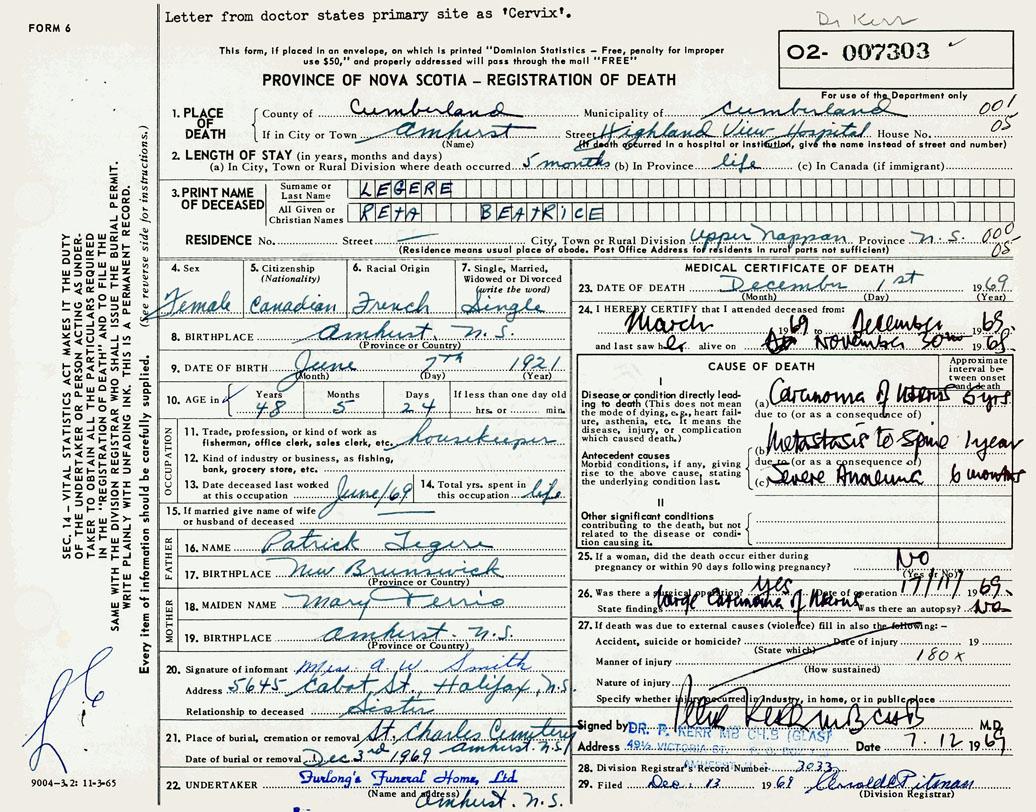 Letter from doctor states primary site as 'Cervix'.
FORM 6
Dr Kerr
This form, if placed in an envelope, on which is printed "Dominion Statistics – Free, penalty for improper
use $50," and properly addressed will pass through the mail "FREE"
O2- 007303
PROVINCE OF NOVA SCOTIA – REGISTRATION OF DEATH
For use of the Department only
1. PLACE OF DEATH County of Cumberland Municipality of Cumberland 001
If in City or Town Amherst Street Highland View Hospital House No. 05
(Name) (If death occurred in a hospital or institution, give the name instead of street and number)
2. LENGTH OF STAY (in years, months and days)
(a) In City, Town or Rural Division where death occurred 5 months (b) In Province life (c) In Canada (if immigrant)
3. PRINT NAME OF DECEASED Surname or Last Name LEGERE
All Given or Christian Names RETA BEATRICE
RESIDENCE No. Street City, Town or Rural Division Upper Nappan Province N.S. 000
(Residence means usual place of abode. Post Office Address for residents in rural parts not sufficient) 08
4. Sex Female
5. Citizenship (Nationality) Canadian
6. Racial Origin French
7. Single, Married, Widowed or Divorced (write the word) Single
8. BIRTHPLACE Amherst, N.S.
(Province or Country)
9. DATE OF BIRTH June 7th 1921
(Month) (Day) (Year)
10. AGE in Years 48 Months 5 Days 24 If less than one day old hrs. or min.
OCCUPATION
11. Trade, profession, or kind of work as fisherman, office clerk, sales clerk, etc. housekeeper
12. Kind of industry or business, as fishing, bank, grocery store, etc.
13. Date deceased last worked at this occupation June/69 14. Total yrs. spent in this occupation life
15. If married give name of wife or husband of deceased
FATHER
16. NAME Patrick Legere
17. BIRTHPLACE New Brunswick
(Province or Country)
MOTHER
18. MAIDEN NAME Mary Terrio
19. BIRTHPLACE Amherst. N.S.
(Province or Country)
20. Signature of informant Mrs. A W Smith
Address 5645 Cabot St., Halifax, N.S.
Relationship to deceased Sister
21. Place of burial, cremation or removal St. Charles Cemetery
Amherst. N.S.
Date of burial or removal Dec 3rd 1969
22. UNDERTAKER Furlong's Funeral Home, Ltd.
(Name and address) Amherst. N.S.
MEDICAL CERTIFICATE OF DEATH
23. DATE OF DEATH December 1st 1969
(Month) (Day) (Year)
24. I HEREBY CERTIFY that I attended deceased from:
March 1969 to December 1969
and last saw her alive on November 30 1969.
CAUSE OF DEATH
Approximate interval between onset and death
I
Disease or condition directly leading to death (This does not mean the mode of dying, e.g., heart failure, asthenia, etc. It means the disease, injury, or complication which caused death.)
(a) Carcinoma of Uterus
due to (or as a consequence of)
Antecedent causes
Morbid conditions, if any, giving rise to the above cause, stating the underlying condition last.
(b) Metastasis to Spine 1 year
due to (or as a consequence of)
(c) Severe Anaemia 6 months
II
Other significant conditions contributing to the death, but not related to the disease or condition causing it.
25. If a woman, did the death occur either during pregnancy or within 90 days following pregnancy? No
(Yes or No)
26. Was there a surgical operation? yes Date of operation 17/11/ 1969.
State findings Large Carcinoma of Uterus Was there an autopsy? No
27. If death was due to external causes (violence) fill in also the following:–
Accident, suicide or homicide? Date of injury 19
(State which)
Manner of injury 180 x
(How sustained)
Nature of injury
Specify whether injury occurred in industry, in home, or in public place
Signed by Kerr MB ChB M.D.
DR. P. KERR MB CH.B (GLAS)
Address 49½ VICTORIA ST. Date 7. 12 1969
AMHERST
28. Division Registrar's Record Number 3033
29. Filed Dec. 13 1969 Pitman
(Division Registrar)
SEC. 14 – VITAL STATISTICS ACT MAKES IT THE DUTY
OF THE UNDERTAKER OR PERSON ACTING AS UNDER-
TAKER TO OBTAIN ALL THE PARTICULARS REQUIRED
IN THE "REGISTRATION OF DEATH" AND TO FILE THE
SAME WITH THE DIVISION REGISTRAR WHO SHALL ISSUE THE BURIAL PERMIT.
WRITE PLAINLY WITH UNFADING INK. THIS IS A PERMANENT RECORD.
Every item of information should be carefully supplied. (See reverse side for instructions.)
9004–3.2: 11-3-65